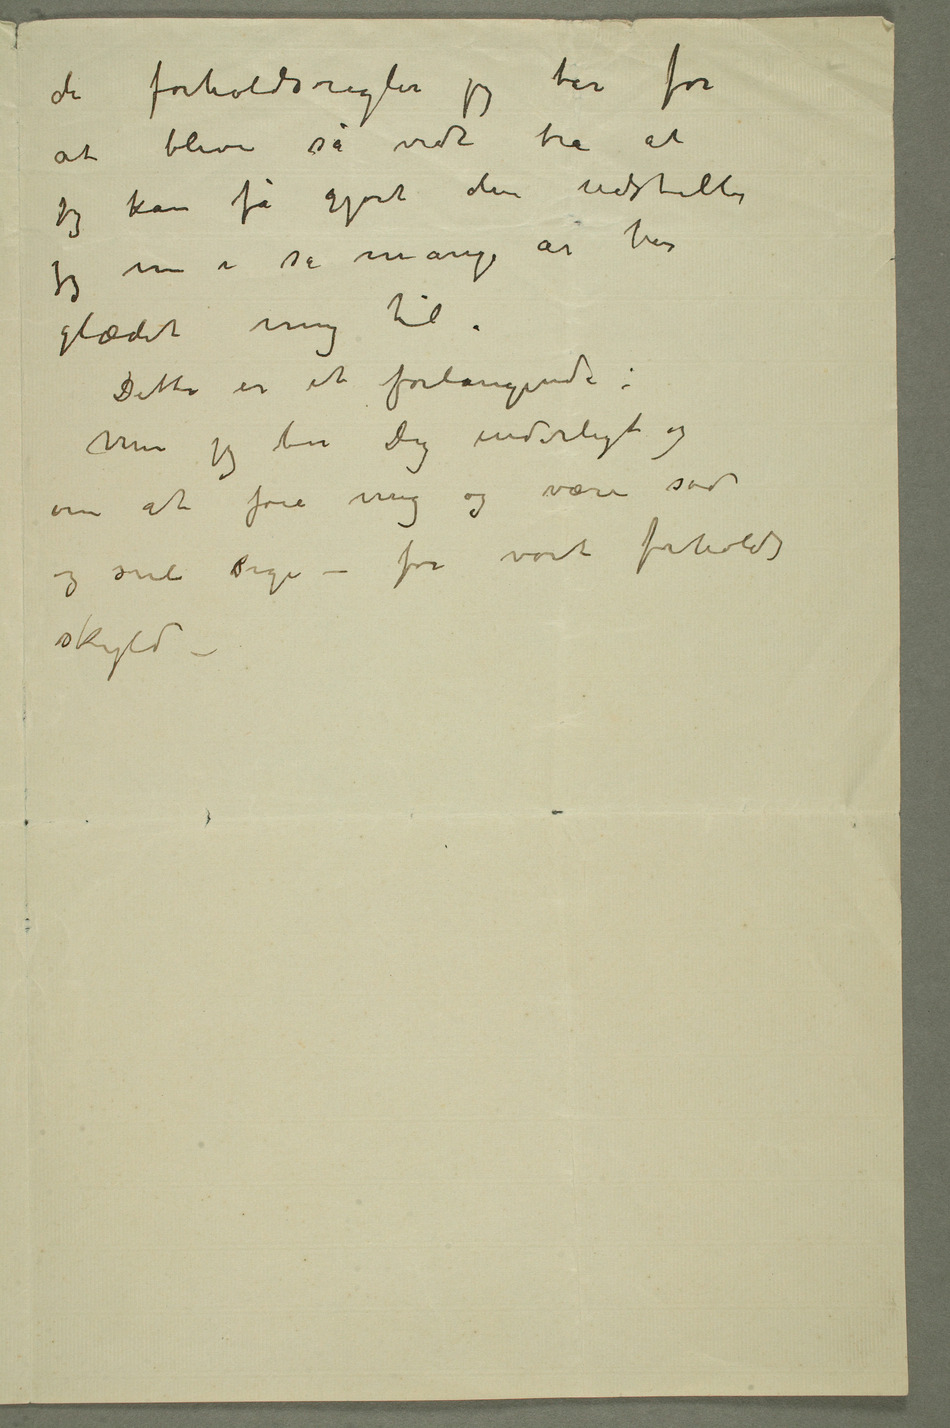 de forholdsregler jeg tar for
at blive så vidt bra at
jeg kan få gjort den udstilling
jeg nu i så mange år har
glædet mig til.
Dette er et forlangende:
Men jeg ber Dig inderligt og
om at føie mig og være sød
og snil Sigi – for vort forholds
skyld –